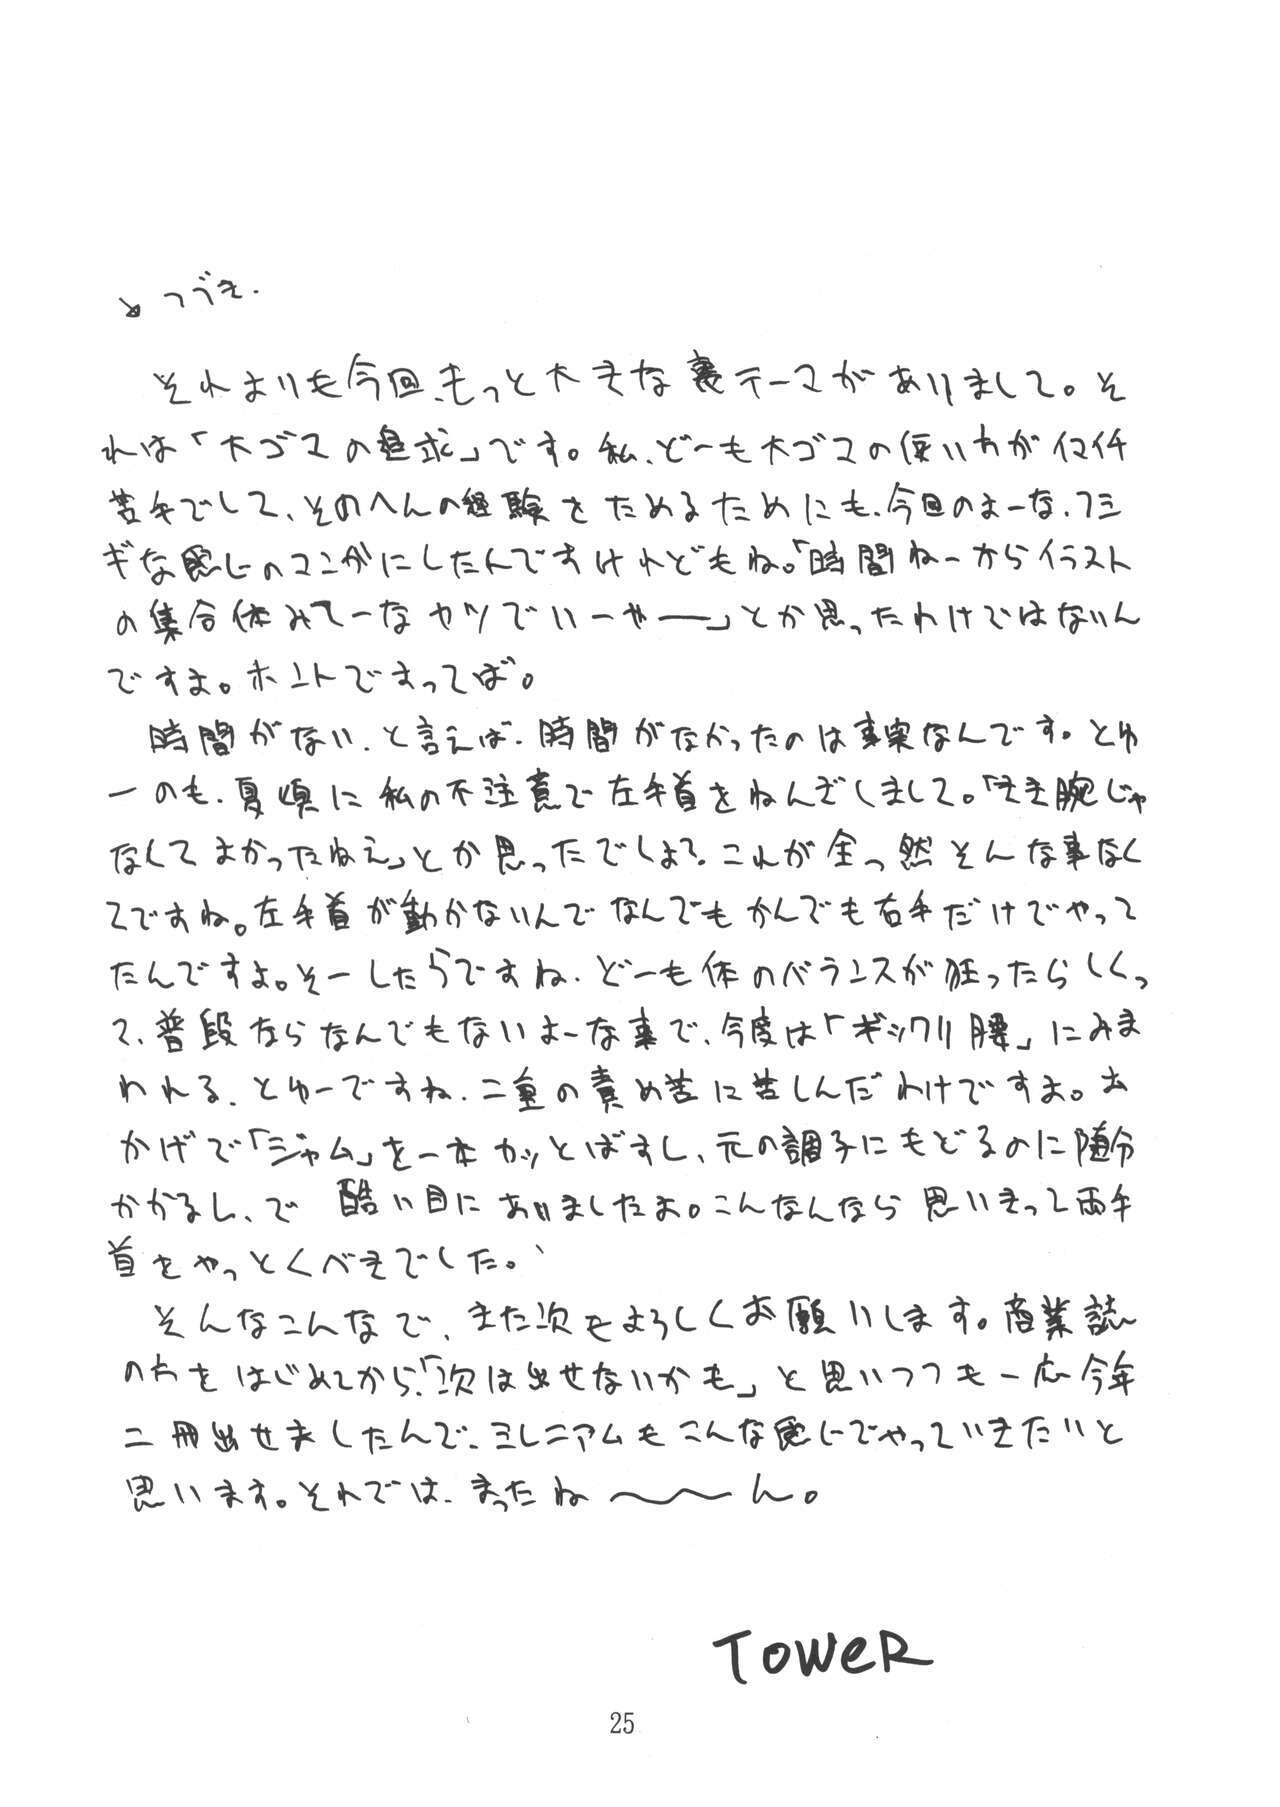 つづき.
それよりも今回、もっと大きな裏テーマがありまして。そ
れは「大ゴマの追求」です。私、どーも大ゴマの使い方がイマイチ
苦手でして、そのへんの経験をためるためにも、今回のよーな、フシ
ギな感じのマンガにしたんですけれどもね。「時間ねーからイラスト
の集合体みてーなヤツでいーやー」とか思ったわけではないん
ですよ。ホントですってば。
時間がない、と言えば、時間がなかったのは事実なんです。とゆ
ーのも、夏頃に私の不注意で左手首をねんざしまして。「きき腕じゃ
なくてよかったねえ」とか思ったでしょ?これが全っ然そんな事なく
てですね。左手首が動かないんでなんでもかんでも右手だけでやって
たんですよ。そーしたらですね、どーも体のバランスが狂ったらしくっ
て、普段ならなんでもないよーな事で、今度は「ギックリ腰」にみま
われる、とゆーですね、二重の責め苦に苦しんだわけですよ。お
かげで「ジャム」を一本カッとばすし、元の調子にもどるのに随分
かかるし、で 酷い目にあいましたよ。こんなんなら思いきって両手
首をやっとくべきでした。
そんなこんなで、また次もよろしくお願いします。商業誌
の方をはじめてから、「次は出せないかも」と思いつつも一応今年
二冊出せましたんで、ミレニアムもこんな感じでやっていきたいと
思います。それでは、まったね〜〜ん。
TOWeR
25